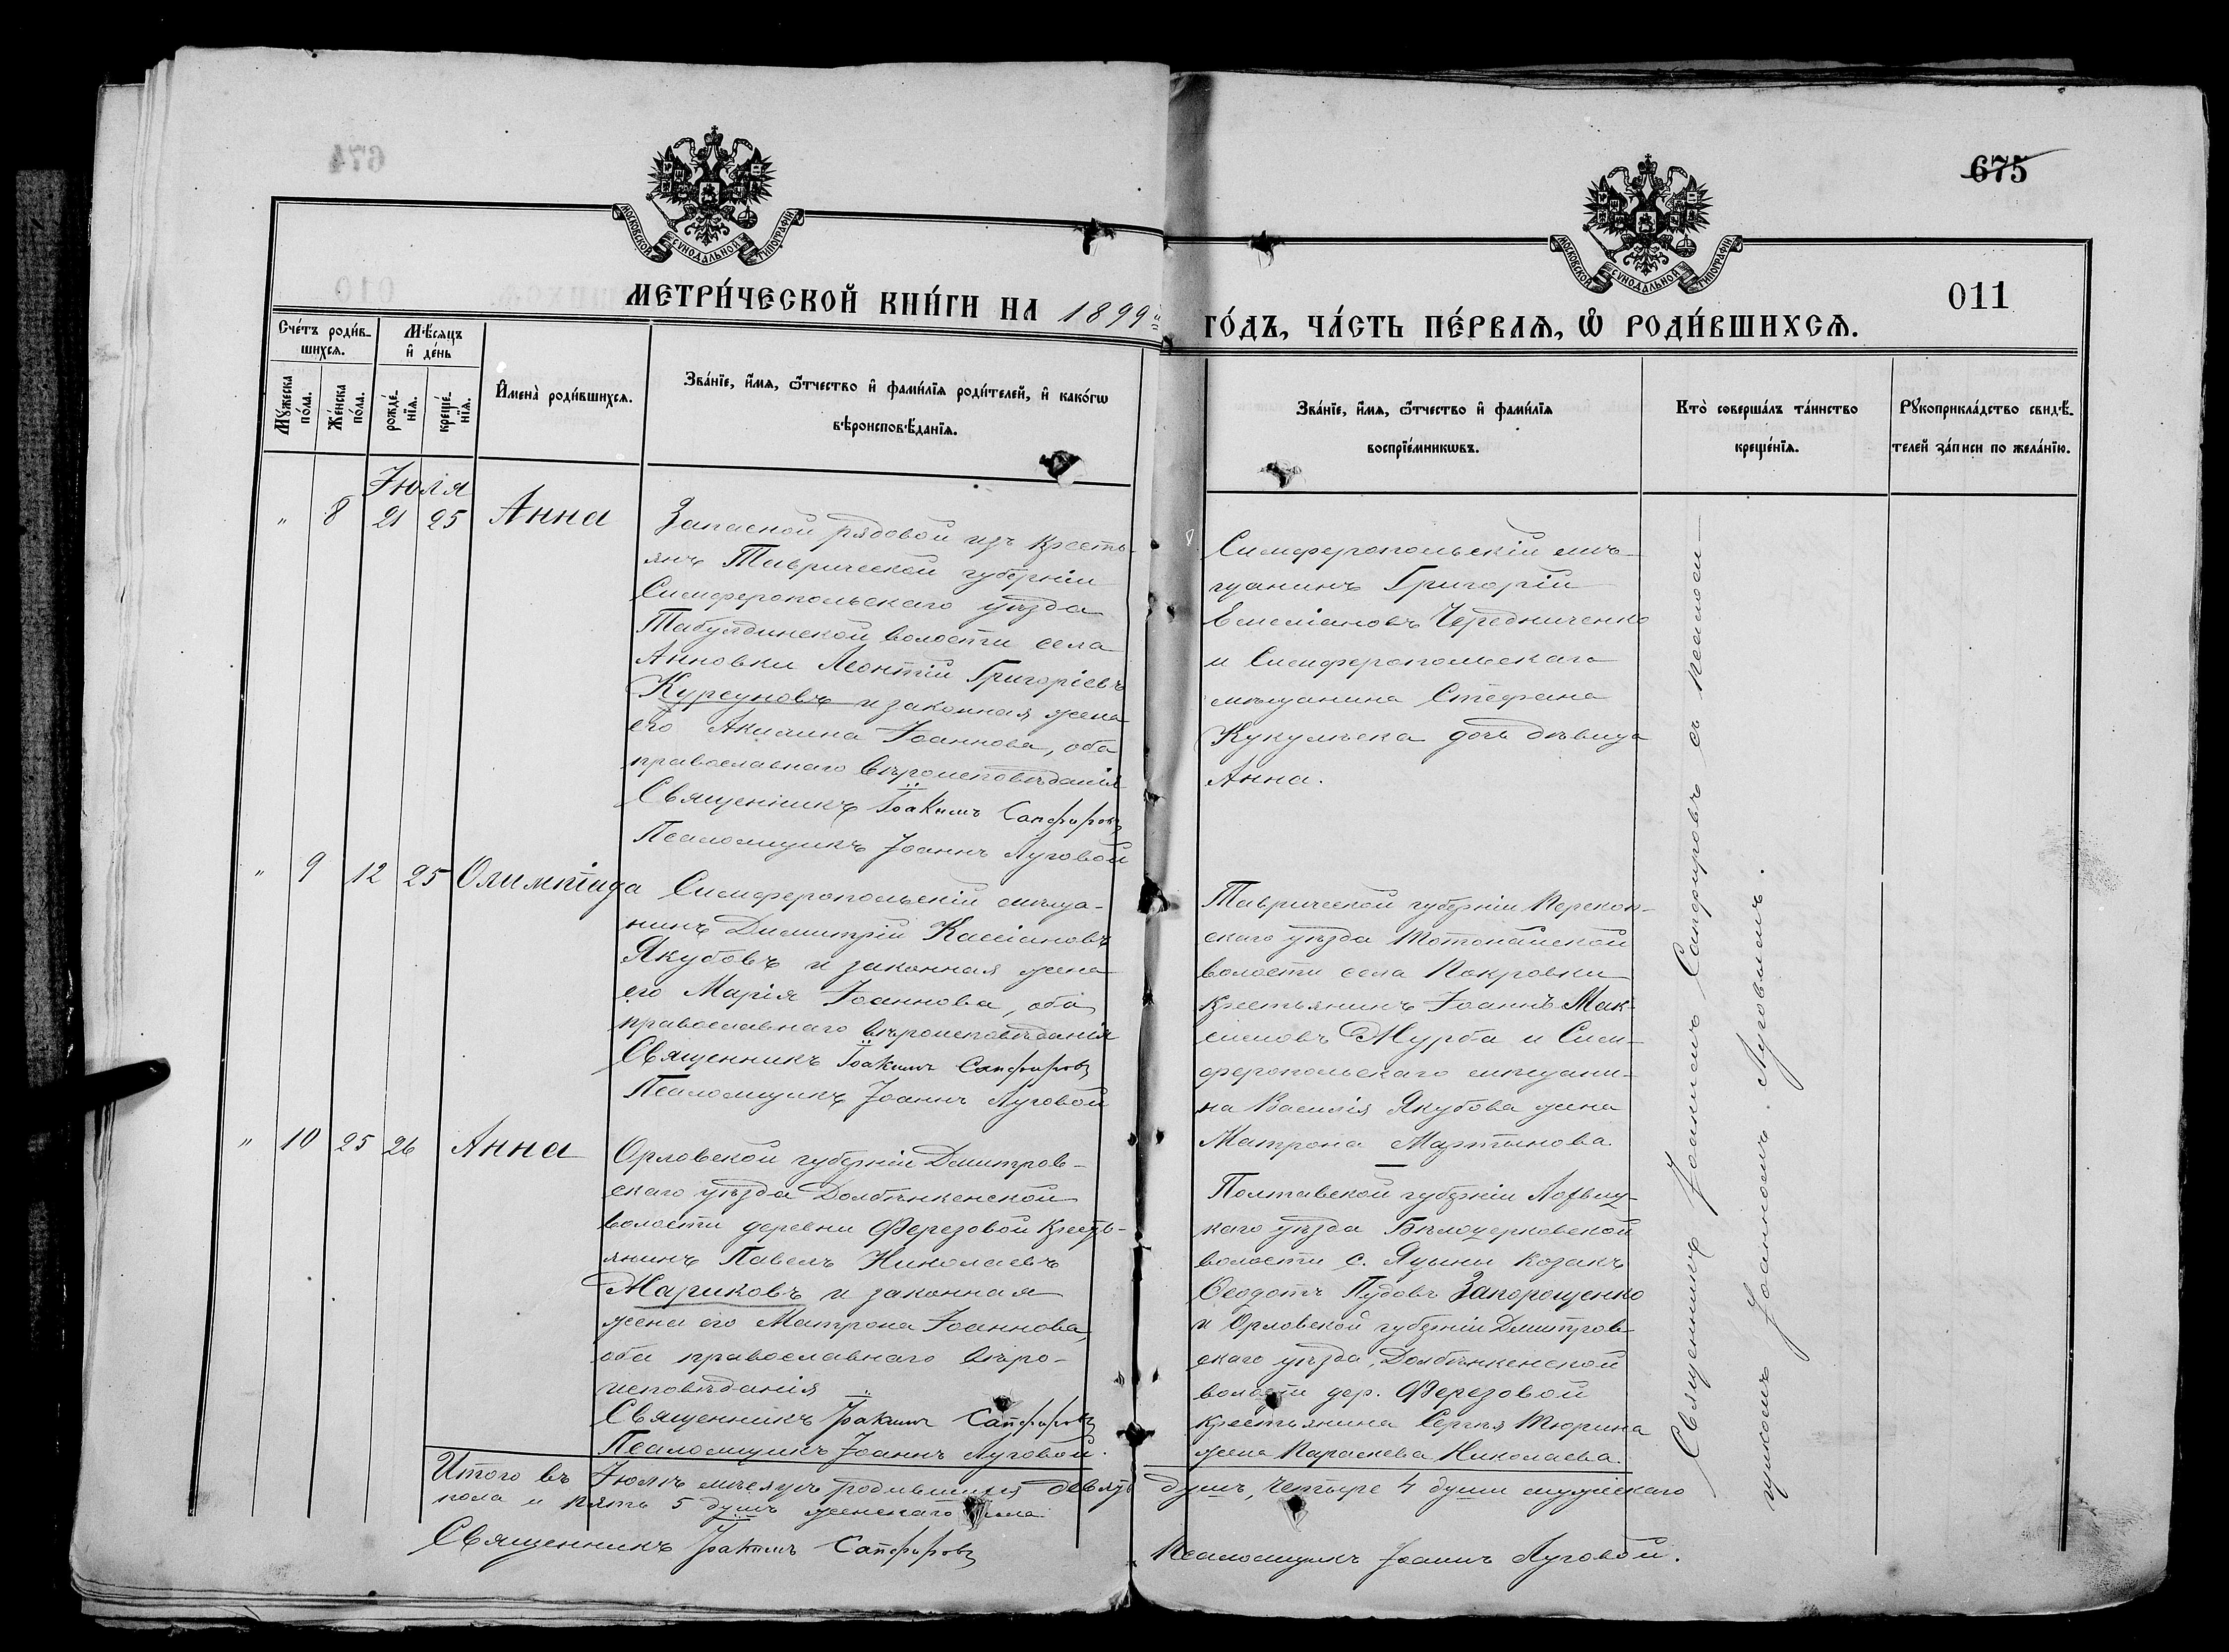 675
011
МОСКОВСКОЙ СѴНОДАЛЬНОЙ ТИПОГРАФІИ
МОСКОВСКОЙ СѴНОДАЛЬНОЙ ТИПОГРАФІИ
МЕТРИ́ЧЕСКОЙ КНИ́ГИ НА 1899й
ГО́ДЪ, ЧА́СТЬ ПЕ́РВАѦ, Ѡ҆ РОДИ́ВШИХСѦ.
Сче́тъ роди́в-
шихсѧ.
Мꙋ́жеска по́ла.
Же́нска по́ла.
Мѣ́сѧцъ
и҆ де́нь
рожде́-
нїѧ.
креще́-
нїѧ.
И҆мена̀ роди́вшихсѧ.
Зва́нїе, и҆́мѧ, ѻ҆́тчество и҆ фами́лїѧ роди́телей, и҆ како́гѡ
вѣроисповѣ́данїѧ.
Зва́нїе, и҆́мѧ, ѻ҆́тчество и҆ фами́лїѧ
воспрїе́мникѡвъ.
Кто̀ соверша́лъ та́инство
креще́нїѧ.
Рꙋкоприкла́дство свидѣ́-
телей за́писи по жела́нїю.
Іюля
" 8 21 25 Анна
Запасной рядовой изъ кресть-
янъ Таврической губерніи
Симферопольскаго уѣзда
Табулдинской волости села
Анновки Леонтій Григоріевъ
Курсуновъ и законная жена
его Акилина Іоаннова, оба
православнаго вѣроисповѣданія
Священникъ Іоакимъ Сапфировъ
Псаломщикъ Іоаннъ Луговой
Симферопольскій мѣ-
щанинъ Григорій
Емеліановъ Чередниченко
и Симферопольскаго
мѣщанина Стефана
Кукулѣска дочь дѣвица
Анна.
" 9 12 25 Олимпіада
Симферопольскій мѣща-
нинъ Димитрій Кассіановъ
Якубовъ и законная жена
его Марія Іоаннова, оба
православнаго вѣроисповѣданія
Священникъ Іоакимъ Сапфировъ
Псаломщикъ Іоаннъ Луговой
Таврической губерніи Перекоп-
скаго уѣзда Тотонайской
волости села Покровки
крестьянинъ Іоаннъ Мак-
симовъ Мурба и Сим-
феропольскаго мѣщани-
на Василія Якубова жена
Матрона Мартинова.
" 10 25 26 Анна
Орловской губерніи Дмитров-
скаго уѣзда Долбѣнкенской
волости деревни Ферезовой кресть-
янинъ Павелъ Николаевъ
Мариковъ и законная
жена его Матрона Іоаннова,
оба православнаго вѣро-
исповѣданія
Священникъ Іоакимъ Сапфировъ
Псаломщикъ Іоаннъ Луговой.
Полтавской губерніи Лохвиц-
каго уѣзда Бѣлоцерковской
волости с. Яцыны козакъ
Ѳеодотъ Пудовъ Запорощенко
и Орловской губерніи Дмитров-
скаго уѣзда, Долбѣнкенской
волости дер. Ферезовой
крестьянина Сергѣя Тюрина
жена Параскева Николаева.
Священникъ Іоакимъ Сапфировъ съ псалом-
щикомъ Іоанномъ Луговымъ.
Итого въ Іюлѣ мѣсяцѣ родившихся девять душъ, четыре 4 души мужескаго
пола и пять 5 душъ женскаго пола.
Священникъ Іоакимъ Сапфировъ
Псаломщикъ Іоаннъ Луговой.